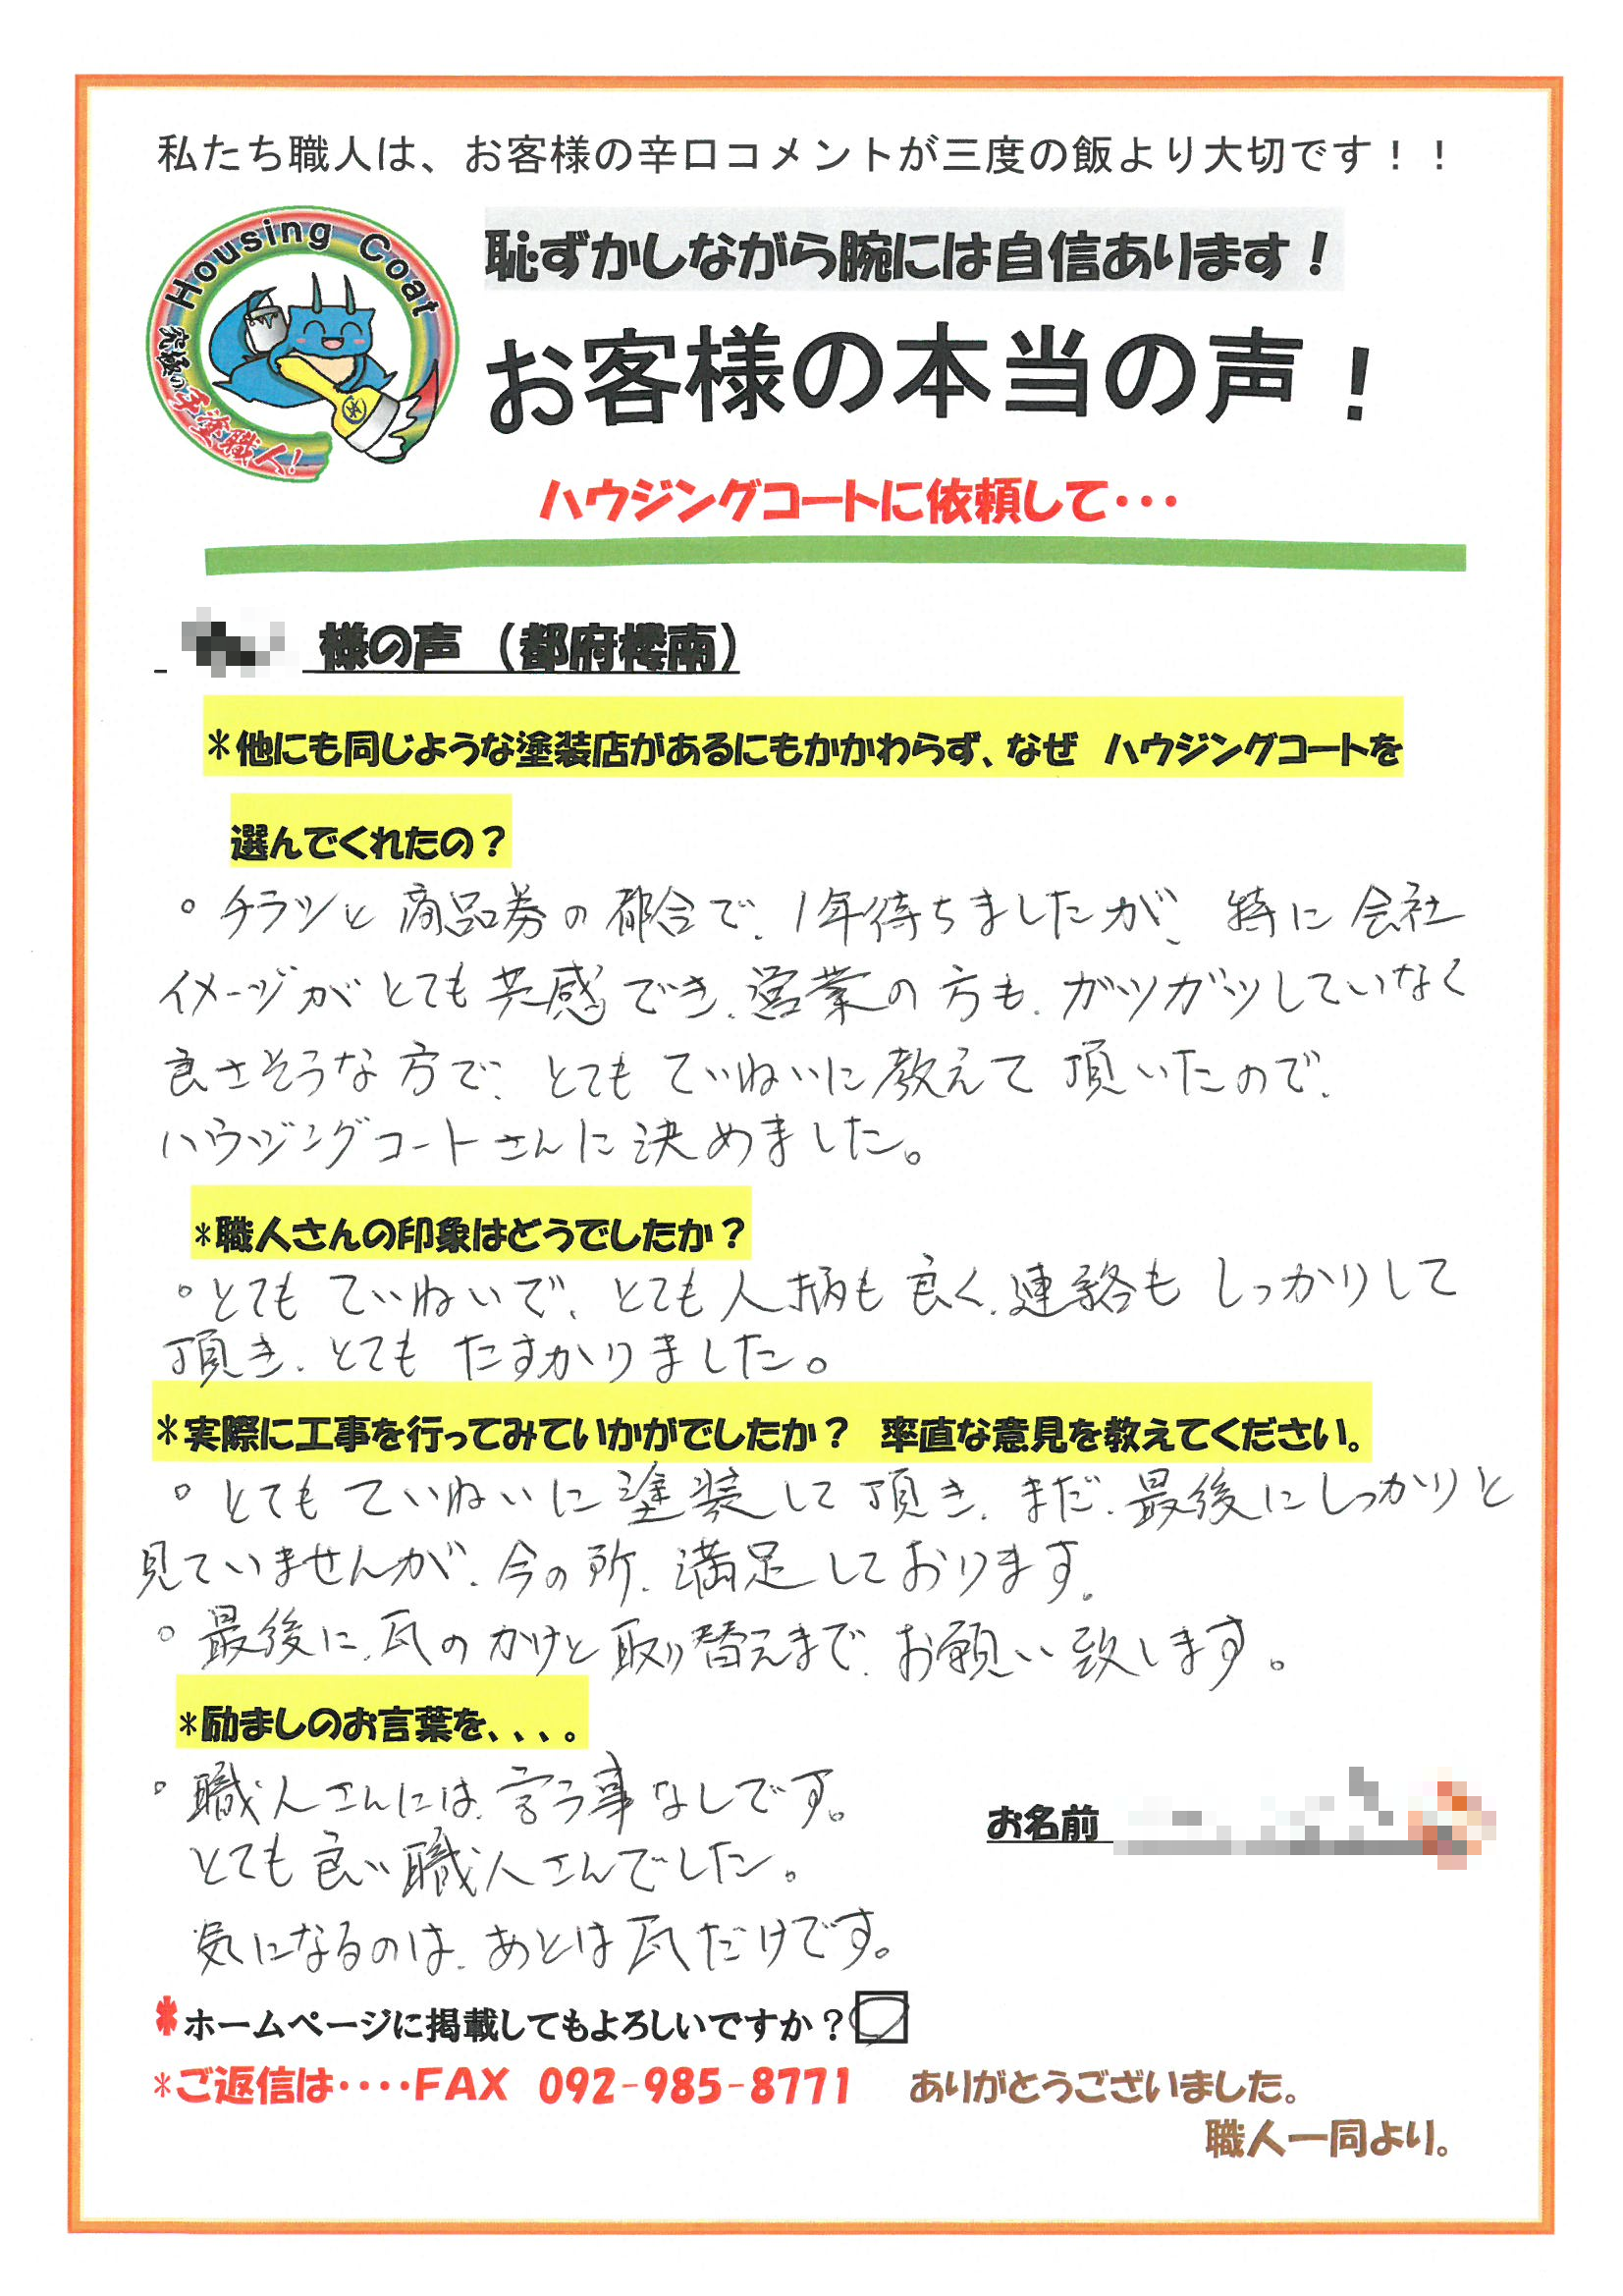 私たち職人は、お客様の辛口コメントが三度の飯より大切です！！
Housing Coat
究極の手塗職人！
恥ずかしながら腕には自信あります！
お客様の本当の声！
ハウジングコートに依頼して・・・
様の声（都府楼南）
*他にも同じような塗装店があるにもかかわらず、なぜ　ハウジングコートを
選んでくれたの？
。チラシと商品券の都合で、1年待ちましたが、特に会社
イメージがとても共感でき、営業の方も、ガツガツしていなく
良さそうな方で、とてもていねいに教えて頂いたので、
ハウジングコートさんに決めました。
*職人さんの印象はどうでしたか？
。とてもていねいで、とても人柄も良く、連絡もしっかりして
頂き、とてもたすかりました。
*実際に工事を行ってみていかがでしたか？　率直な意見を教えてください。
。とてもていねいに塗装して頂き、まだ、最後にしっかりと
見ていませんが、今の所、満足しております。
。最後に、瓦のかけと取り替えまで、お願い致します。
*励ましのお言葉を、、、。
。職人さんには、言う事なしです。
お名前
とても良い職人さんでした。
気になるのは、あとは瓦だけです。
*ホームページに掲載してもよろしいですか？
*ご返信は・・・・FAX　092-985-8771　ありがとうございました。
職人一同より。